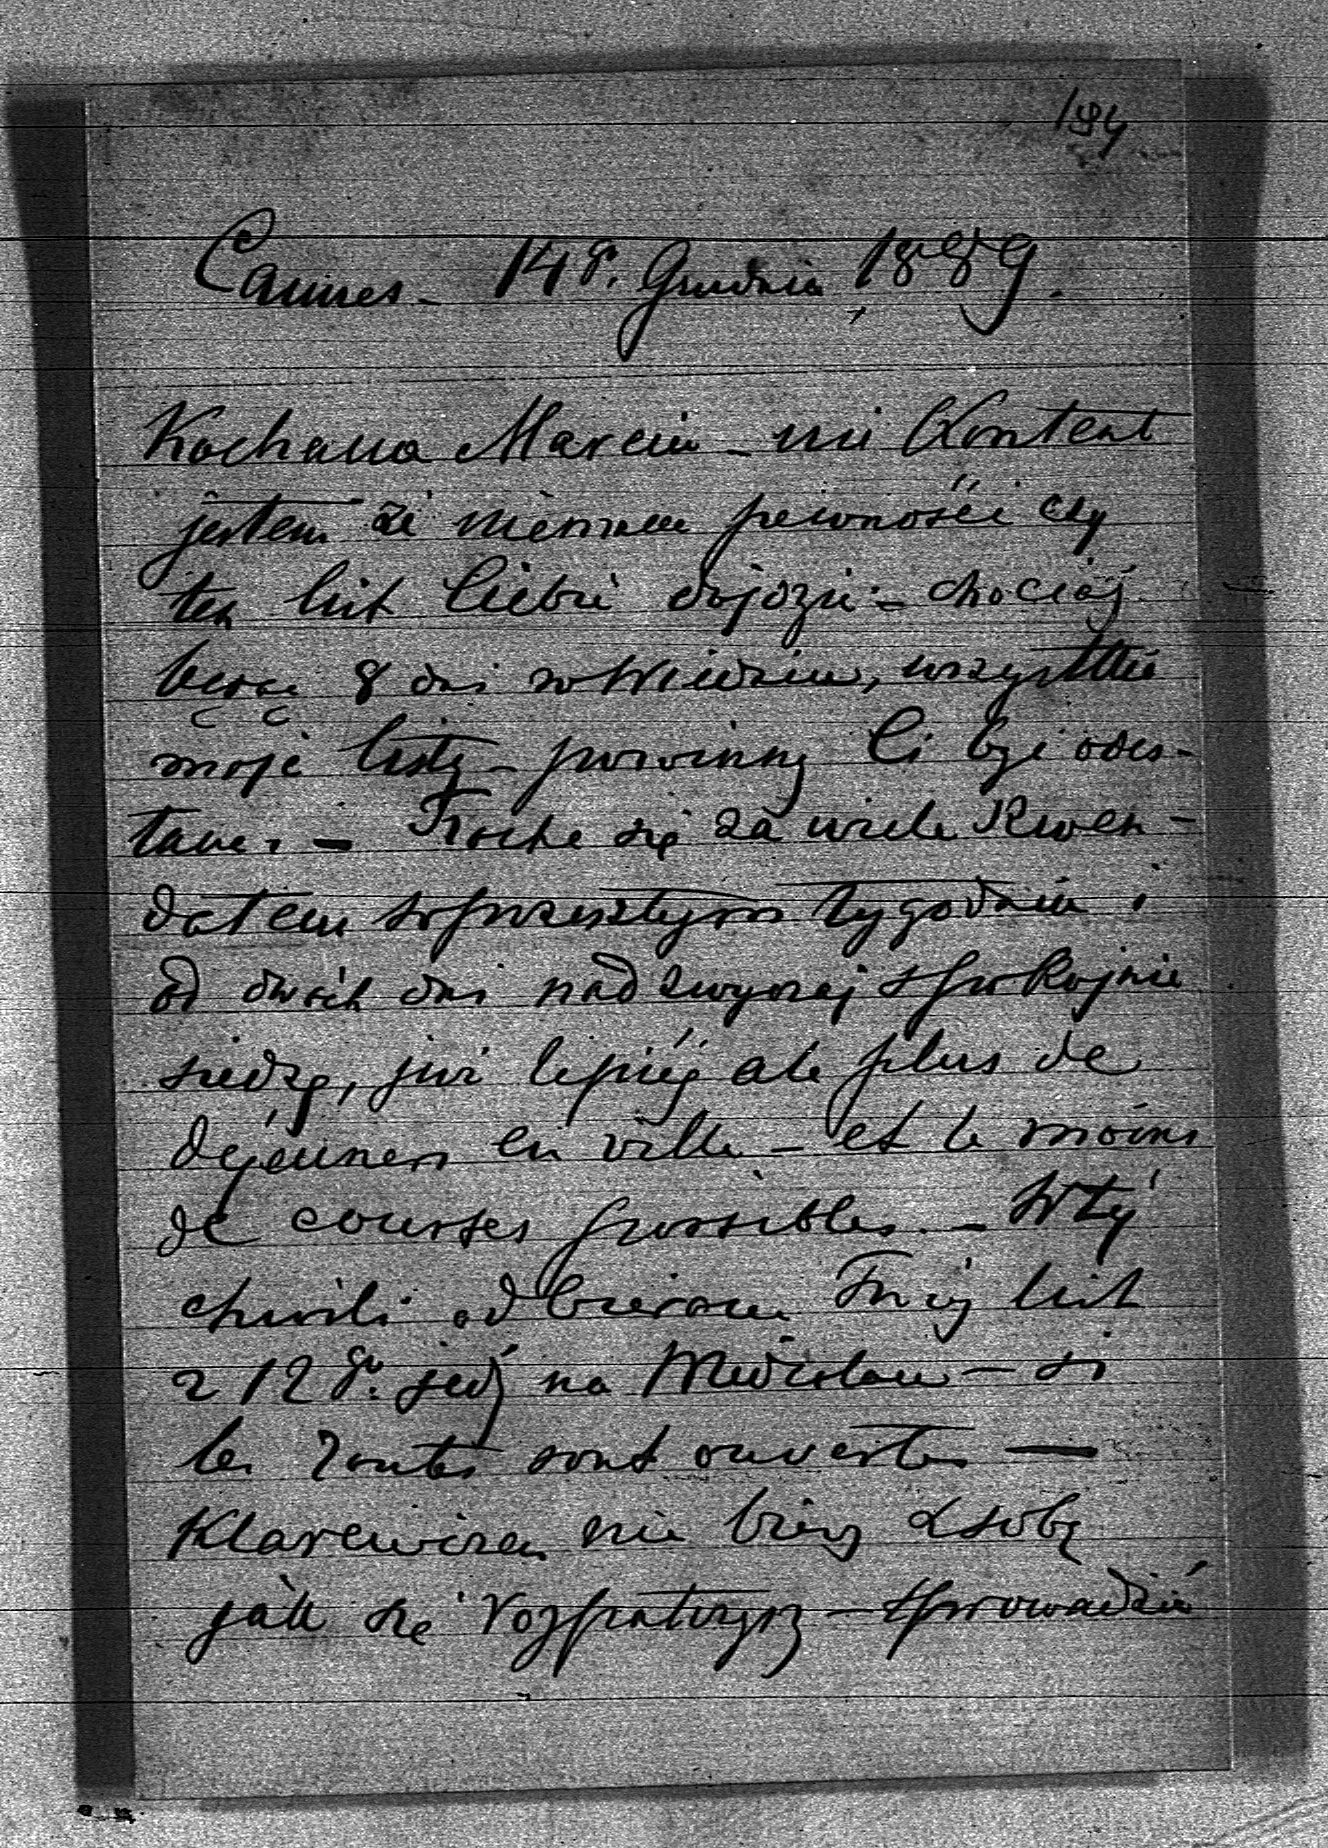 194
Cannes - 14 g. Grudnia 1889.
Kochana Marciu - nie Kontent
jestem że nie mam pewności czy
ten list Ciebie dojdzie - chociaj
będąc 8 dni w Wiedniu, wszystkie
moje listy powinny Ci być odes-
łane. - Trochę się za wiele
w przeszłym tygodniu i
od dwóch dni nadzwyczaj spokojnie
siedzę, już lepiéj ale plus de
déjeuners en ville - et le moins
de courses possibles - W téj
chwili odbieram Twój list
z 12 go. jedź na - si
les routes sont ouvertes -
nie bierz z sobą
jak się rozpatrzysz - sprowadzić